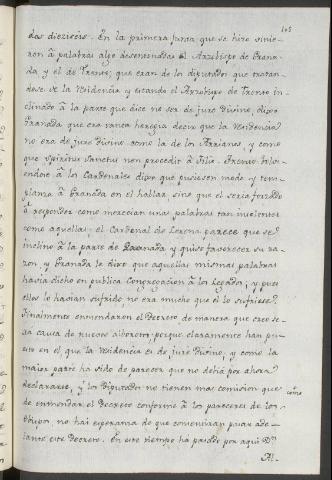 105
das dieziseis. En la primera Junta que se hizo vinie-
ron à palabras algo descomedidas el Arzobispo de Grana-
da y el de Trento, que eran de los diputados que tratan-
dose de la Residencia y estando el Arzobispo de Trento in-
clinado à la parte que dice no ser de jure Divino, dixo
Granada que era tanta heregia decir que la Residencia
no era de jure Divino como la de los Arrianos, y como
que Spiritus Sanctus non procedit à Filio. Trento bolvi-
endose à los Cardenales dixo que pusiesen modo y tem-
planza à Granada en el hablar, sino que el seria forzado
à responder como merecian unas palabras tan insolentes
como aquellas; el Cardenal de Lorena parece que se
inclinò à la parte de Granada y quiso favorecer su ra-
zon, y Granada le dixo que aquellas mismas palabras
havia dicho en publica Congregacion à los Legados, y pues
ellos lo havian sufrido, no era mucho que el lo sufriese.
Finalmente enmendaron el Decreto de manera que creo se-
rà causa de nuevo alboroto, porque claramente han pu-
esto en el que la residencia es de jure Divino, y como la
maior parte ha sido de parecer que no debia por ahora
declararse, y los Diputados no tienen mas comision que
de enmendar el Decreto conforme à los pareceres de los
como
Obispos, no hai esperanza de que convendran pasar ade-
lante este Decreto. En este tiempo ha pasado por aqui Dn
Al-